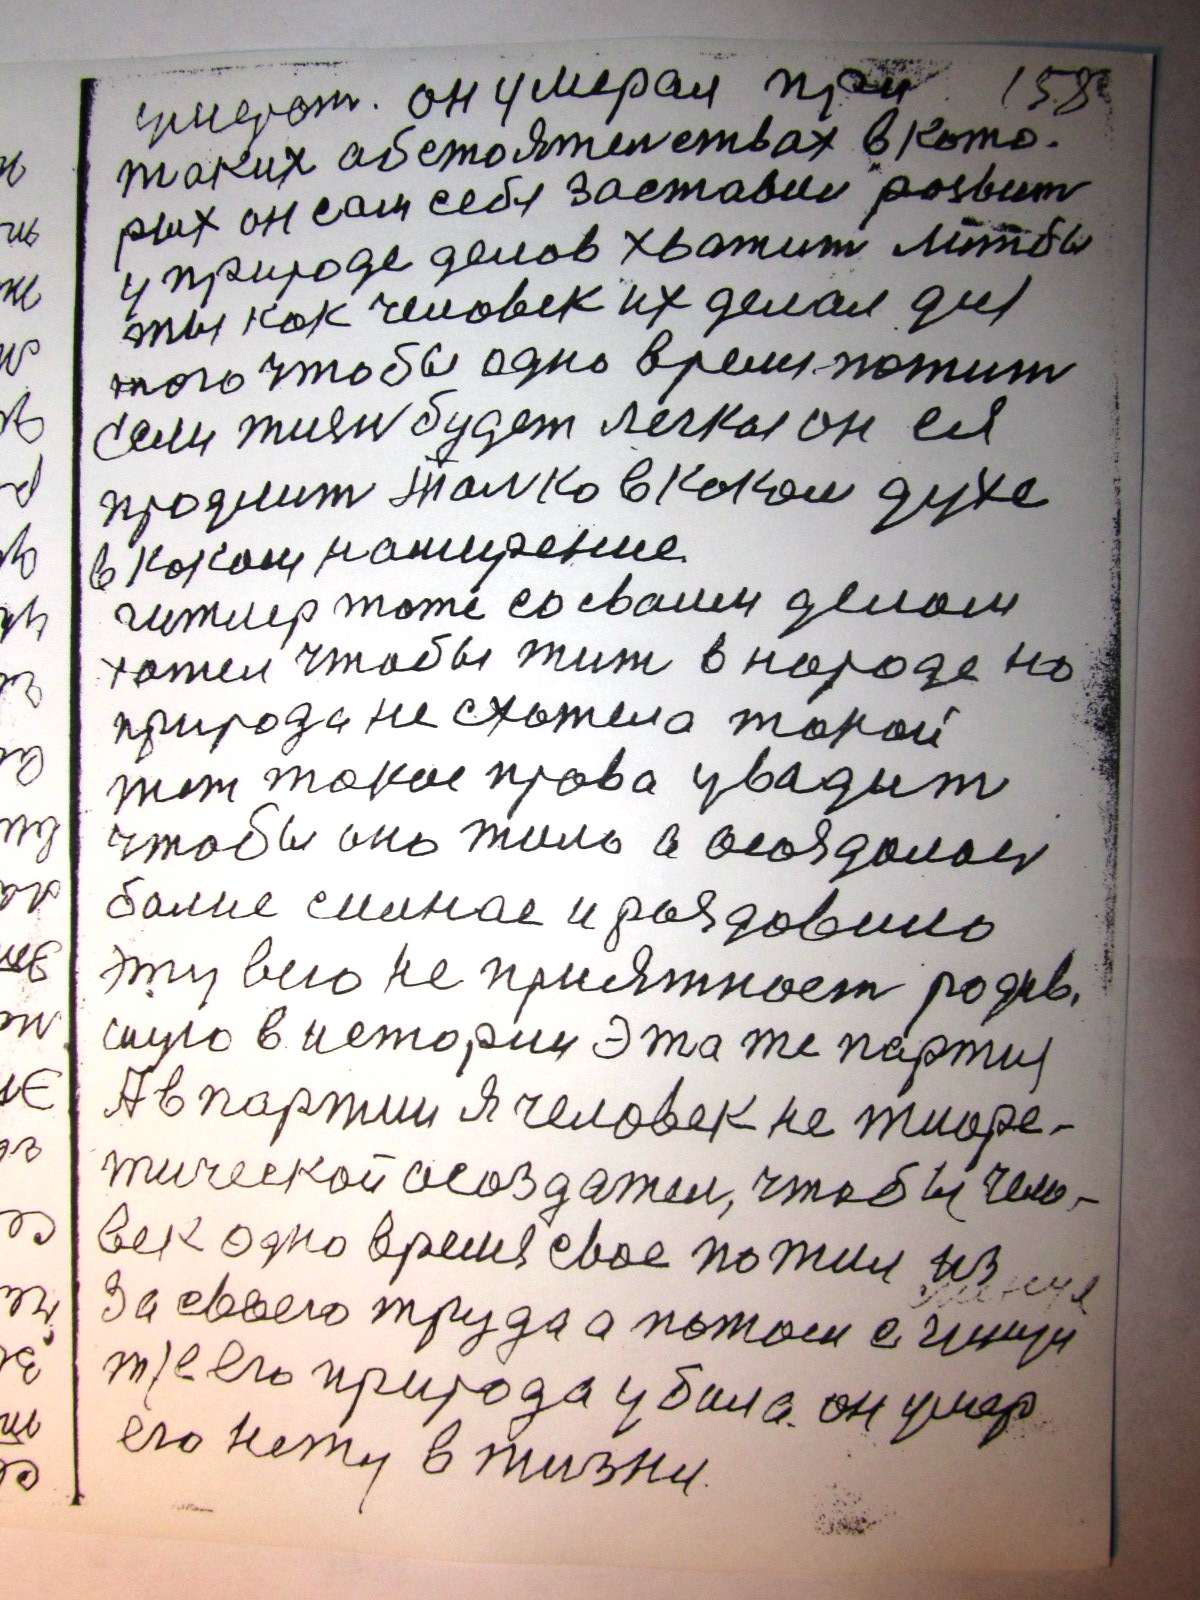 158
умерат. он умерал при
таких абстоятелствах в като-
рых он сам себя заставил развит
у природе делов хватит литбы
ты как человек их делал для
того чтобы одно время пожит
Если жизн будет легкая он ея
продлит Талко в каком духе
в каком намирение
гитлер тоже со сваим делом
хател чтобы жит в народе но
природа не схатела такой
жит такое права увадит
чтобы оно жило а асаздалас
балие силное и раздовило
эту его не приятност родив-
шую в истории Эта же партия
А в партии я человек не тиоре-
тической асоздател, чтобы чело-
век одно время свае пожил из
За своего труда а патом с
его природа убила. он умер
его нету в жизни.